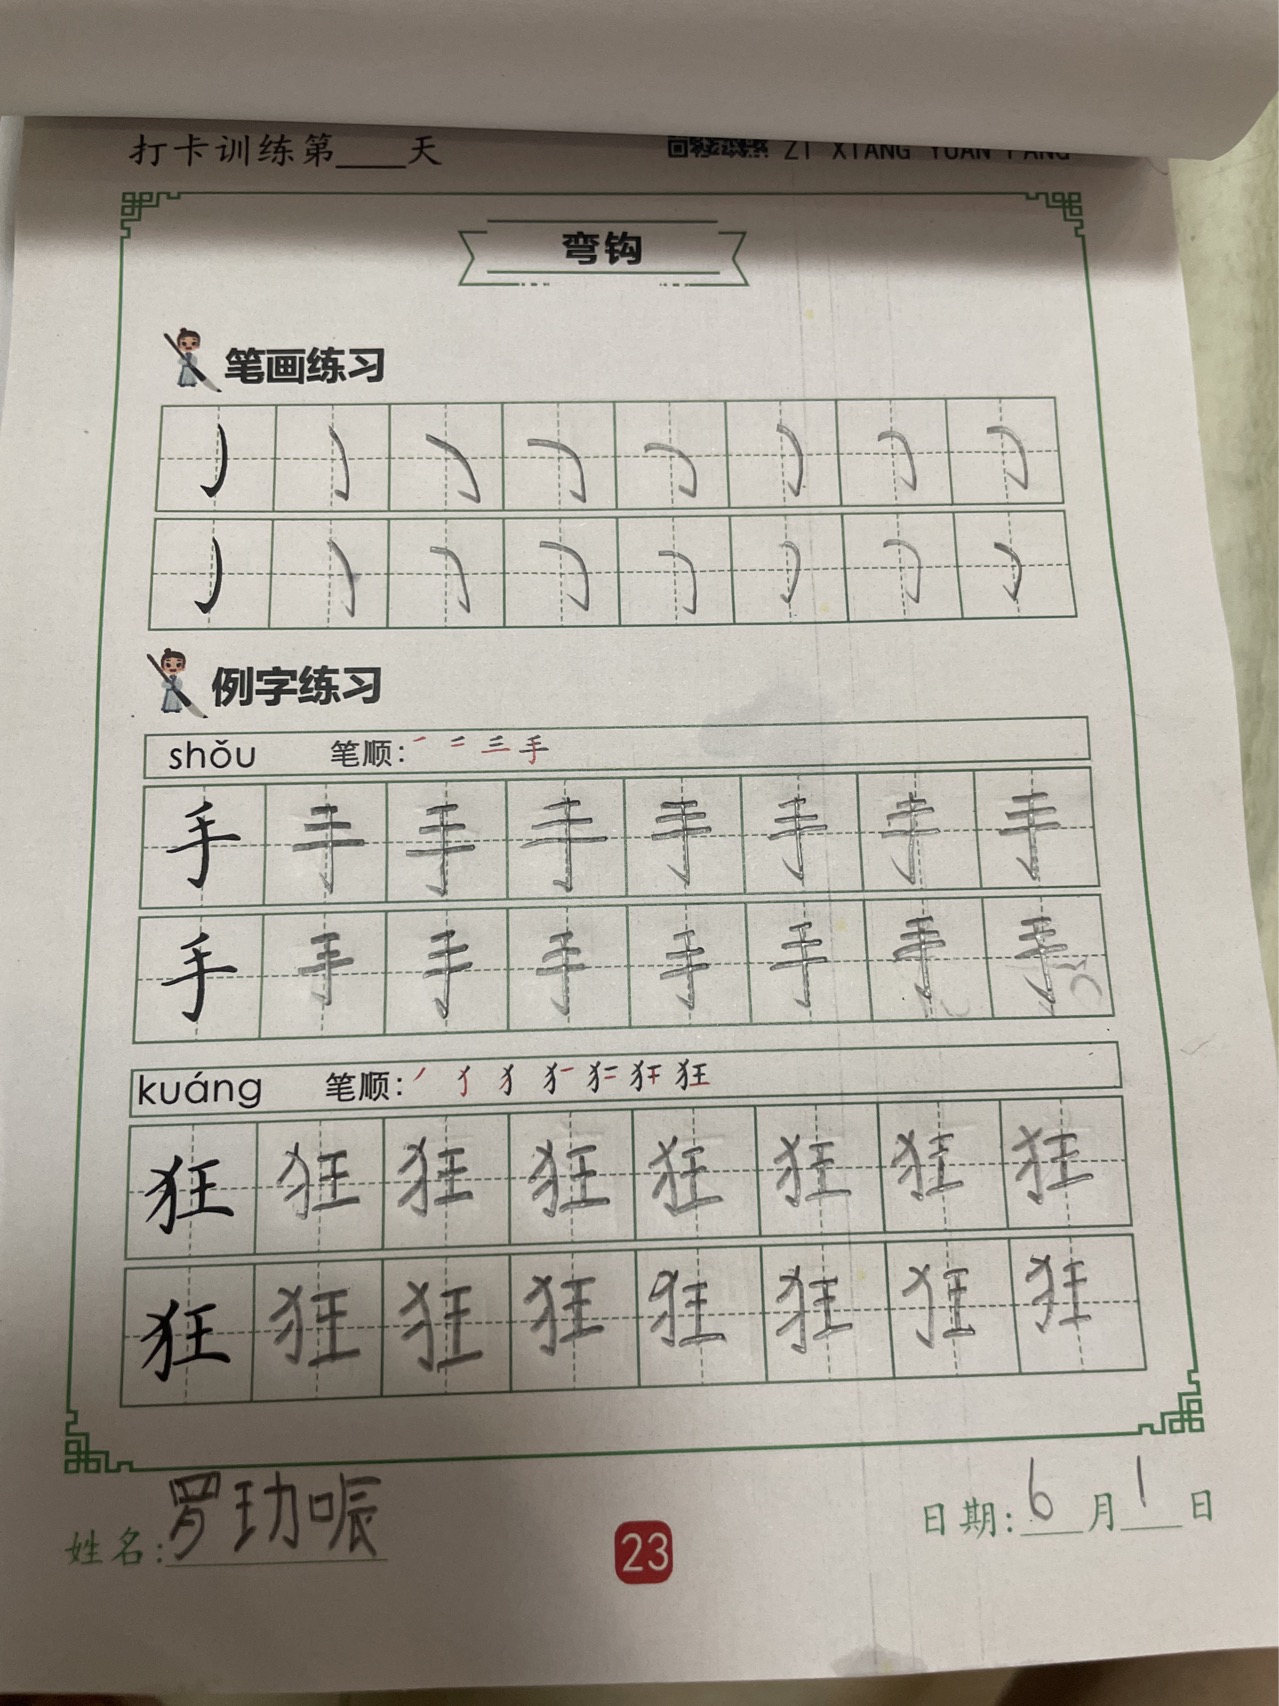 打卡训练第____天 ZI XIANG YUAN FANG
弯钩
笔画练习
例字练习
shǒu 笔顺: 手
手 手 手 手 手 手 手 手
手 手 手 手 手 手 手 手
kuáng 笔顺: 狂
狂 狂 狂 狂 狂 狂 狂 狂
狂 狂 狂 狂 狂 狂 狂 狂
姓名: 罗玏哫 日期: 6月1日
23